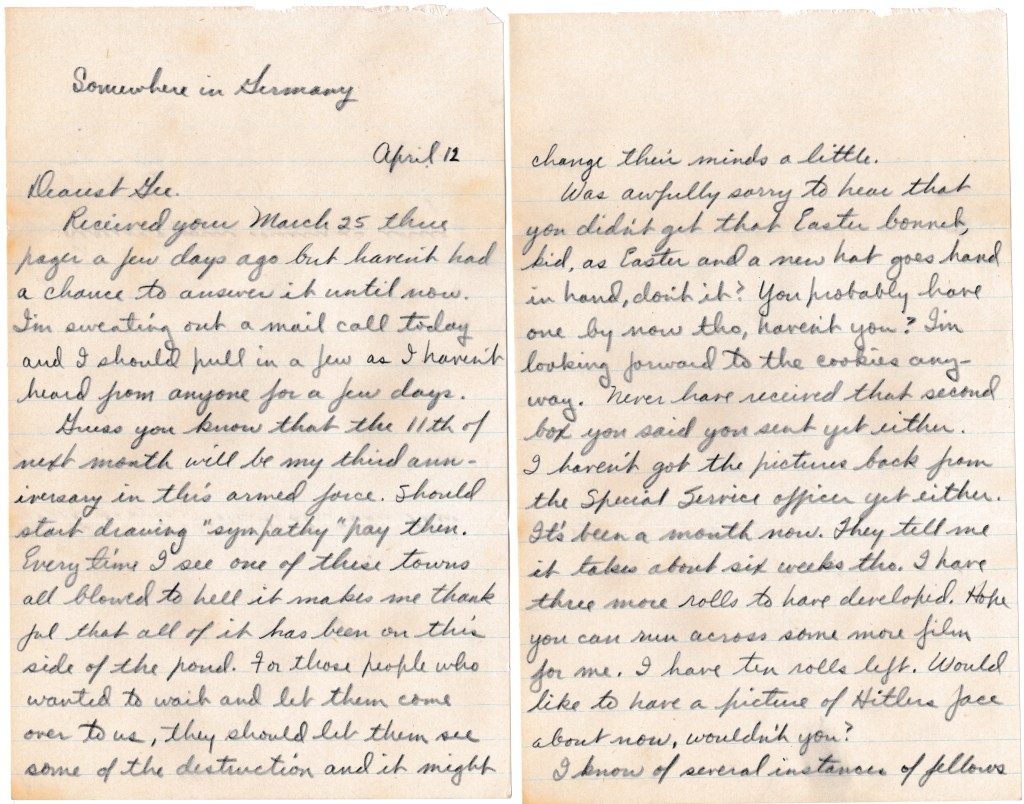 Somewhere in Germany
April 12
Dearest Gee.
Received your March 25 three
pager a few days ago but haven't had
a chance to answer it until now.
I'm sweating out a mail call today
and I should pull in a few as I haven't
heard from anyone for a few days.
Guess you know that the 11th of
next month will be my third ann-
iversary in this armed force. Should
start drawing "sympathy" pay then.
Every time I see one of these towns
all blowed to hell it makes me thank
ful that all of it has been on this
side of the pond. For those people who
wanted to wait and let them come
over to us, they should let them see
some of the destruction and it might
change their minds a little.
Was awfully sorry to hear that
you didn't get that Easter bonnet,
kid, as Easter and a new hat goes hand
in hand, don't it? You probably have
one by now tho, haven't you? I'm
looking forward to the cookies any-
way. Never have received that second
box you said you sent yet either.
I haven't got the pictures back from
the Special Service officer yet either.
It's been a month now. They tell me
it takes about six weeks tho. I have
three more rolls to have developed. Hope
you can run across some more film
for me. I have ten rolls left. Would
like to have a picture of Hitlers face
about now, wouldn't you?
I know of several instances of fellows